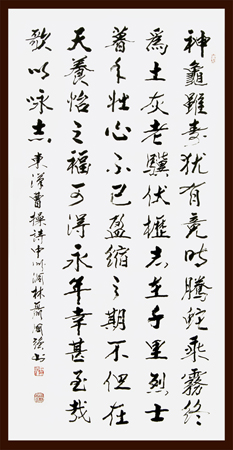 神龜雖壽犹有竟時騰蛇乘霧終
爲土灰老驥伏櫪志在千里烈士
暮年壯心不已盈縮之期不但在
天養怡之福可得永年幸甚至哉
歌以咏志 東漢曹操詩中州